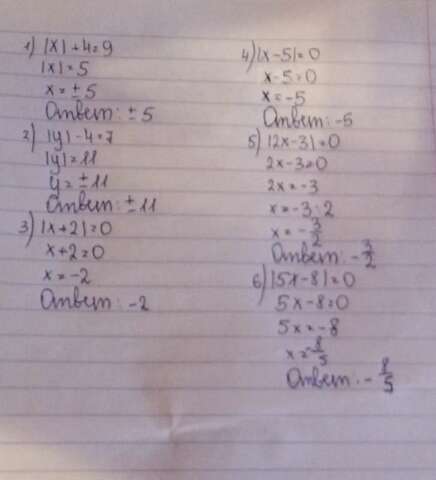 1) |x|+4=9
|x|=5
x=±5
Ответ: ±5
2) |y|-4=7
|y|=11
y=±11
Ответ: ±11
3) |x+2|=0
x+2=0
x=-2
Ответ: -2
4) |x-5|=0
x-5=0
x=-5
Ответ: -5
5) |2x-3|=0
2x-3=0
2x=-3
x=-3:2
x=-3/2
Ответ: -3/2
6) |5x-8|=0
5x-8=0
5x=-8
x=-8/5
Ответ: -8/5